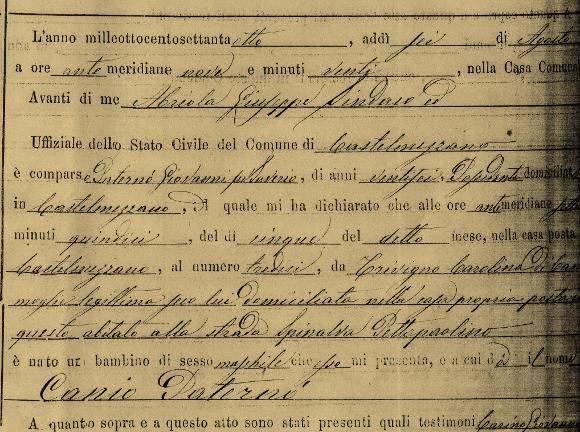 L'anno milleottocentosettantaotto, addì sei di Agosto
a ore antemeridiane nove e minuti venti, nella Casa Comuna
Avanti di me Abriola Giuseppe Sindaco ed
Uffiziale dello Stato Civile del Comune di Castelmezzano
è comparso Paternò Giovanni, di anni ventisei, domiciliat
in Castelmezzano, il quale mi ha dichiarato che alle ore antemeridiane
minuti quindici, del dì cinque del detto mese, nella casa posta
Castelmezzano, al numero tredici, da Trivigno Carolina di
moglie legittima seco lui domiciliata nella casa propria posta
questo abitato alla strada Spinalva
è nato un bambino di sesso maschile che esso mi presenta, e a cui dà il nome
Canio Paternò
A quanto sopra e a questo atto sono stati presenti quali testimoni